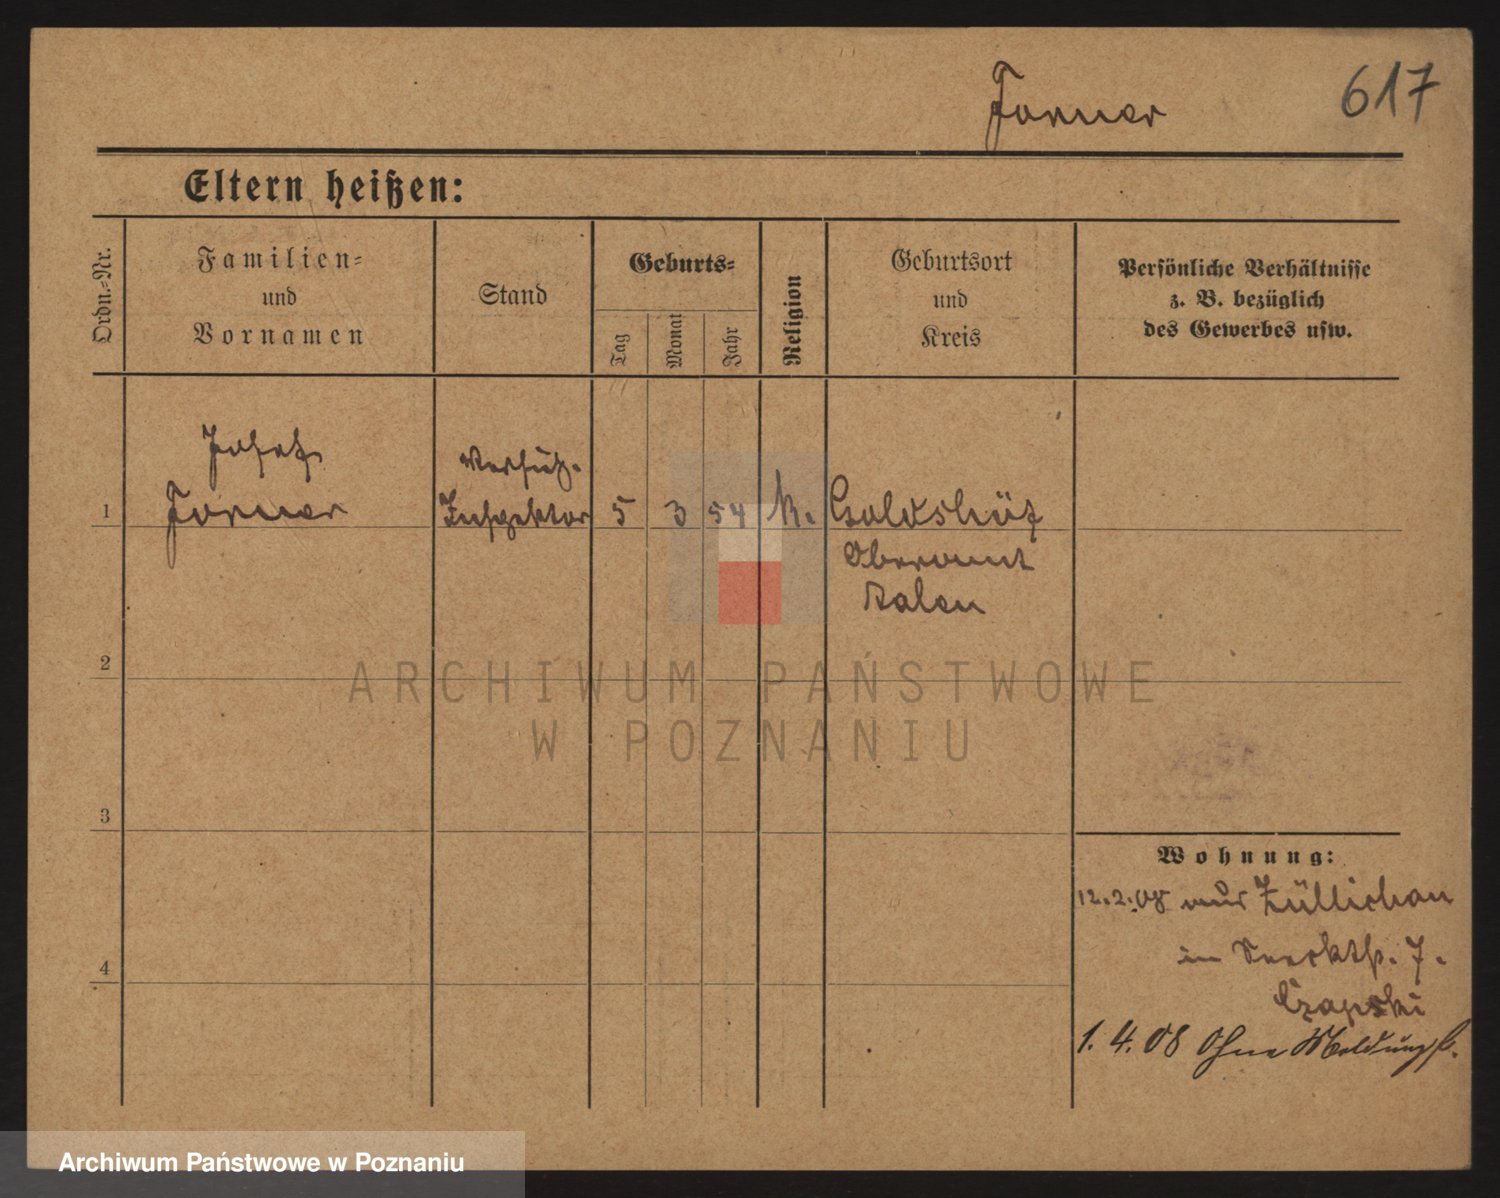 Forner
617
Eltern heißen:
Ordn.-Nr.
Familien-
und
Vornamen
Stand
Geburts-
Tag
Monat
Jahr
Religion
Geburtsort
und
Kreis
Persönliche Verhältnisse
z. B. bezüglich
des Gewerbes usw.
1
Josef
Forner
Inspektor
5
3
54
k.
Goldshöf
Oberamt
Aalen
2
3
4
ARCHIWUM PAŃSTWOWE
W POZNANIU
Wohnung:
12.2.08 aus Züllichau
in 7.
Czapski
1.4.08 Ohne Meldung
Archiwum Państwowe w Poznaniu